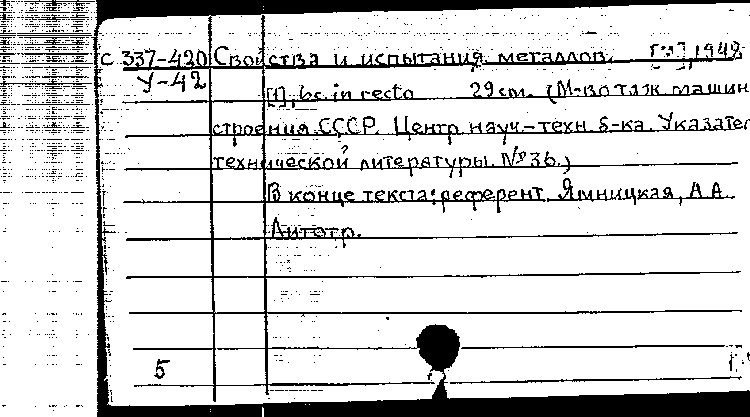 С 337-420 Свойства и испытания металлов. [М], 1948
У-42
[1], 6с. in recto 29 cm. (М-во тяж. машин
строения СССР. Центр. науч-техн. б-ка. Указател
технической литературы. № 36.)
В конце текста: референт. Ямницкая, А.А.
Литогр.
5